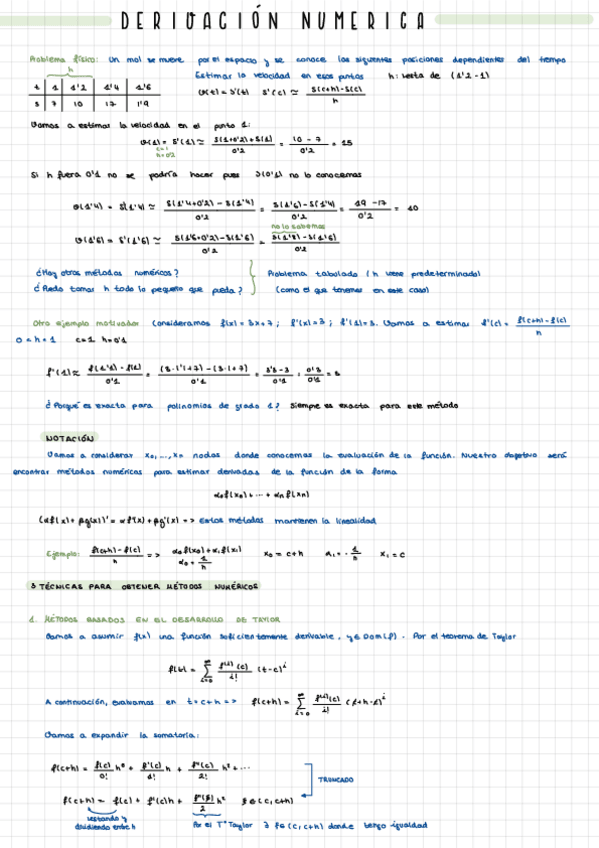 DERIVACIÓN NUMERICA
Problema físico: Un mol se mueve por el espacio y se conoce las siguientes posiciones dependientes del tiempo
Estimar la velocidad en esos puntos h: resta de (1'2-1)
h
t 1 1'2 1'4 1'6
s 7 10 17 19
v(t) = s'(t) s'(c) ≃ (s(c+h)-s(c))/h
Vamos a estimar la velocidad en el punto 1:
v(1) = s'(1) ≃ (s(1+0'2)+s(1))/0'2 = (10 - 7)/0'2 = 15
c=1
h=0'2
Si h fuera 0'1 no se podría hacer pues s(0'1) no lo conocemos
v(1'4) = s'(1'4) ≃ (s(1'4+0'2) - s(1'4))/0'2 = (s(1'6)-s(1'4))/0'2 = (19 -17)/0'2 = 10
no lo sabemos
v(1'6) = s'(1'6) ≃ (s(1'6+0'2)-s(1'6))/0'2 = (s(1'8)-s(1'6))/0'2
¿Hay otros métodos numéricos?
¿Puedo tomar h todo lo pequeño que pueda?
Problema tabulado (h viene predeterminado)
(como el que tenemos en este caso)
Otro ejemplo motivador Consideramos f(x) = 3x+7; f'(x)=3; f'(1)=3. Vamos a estimar f'(c) = (f(c+h)-f(c))/h
0<h<1 c=1 h=0'1
f'(1) ≃ (f(1'1) - f(1))/0'1 = (3·1'1+7) - (3·1+7)/0'1 = (3'3-3)/0'1 = 0'3/0'1 = 3
¿Porqué es exacta para polinomios de grado 1? Siempre es exacta para este método
NOTACIÓN
Vamos a considerar x₀,...,xₙ nodos donde conocemos la evaluación de la función. Nuestro objetivo será
encontrar métodos numéricos para estimar derivadas de la función de la forma
α₀f(x₀)+ ··· + αₙf(xₙ)
(αf(x)+βg(x))' = αf'(x)+βg'(x) => Estos métodos mantienen la linealidad
Ejemplo: (f(c+h)-f(c))/h => α₀f(x₀)+α₁f(x₁) x₀ = c+h α₁ = -1/h x₁ = c
α₀ = 1/h
3 TÉCNICAS PARA OBTENER MÉTODOS NUMÉRICOS
1. MÉTODOS BASADOS EN EL DESARROLLO DE TAYLOR
Vamos a asumir f(x) una función suficientemente derivable, y c∈Dom(f). Por el teorema de Taylor
f(t) = ∑_{i=0}^{∞} f^{(i)}(c)/i! (t-c)^i
A continuación, evaluamos en t=c+h => f(c+h) = ∑_{i=0}^{∞} f^{(i)}(c)/i! (c+h-c)^i
Vamos a expandir la somatoria:
f(c+h) = f(c)/0! h⁰ + f'(c)/1! h + f''(c)/2! h² + ···
TRUNCADO
f(c+h) = f(c) + f'(c)h + f''(ξ)/2 h² ξ∈(c,c+h)
restando y
dividiendo entre h
Por el Tª Taylor ∃ ξ∈(c,c+h) donde tengo igualdad